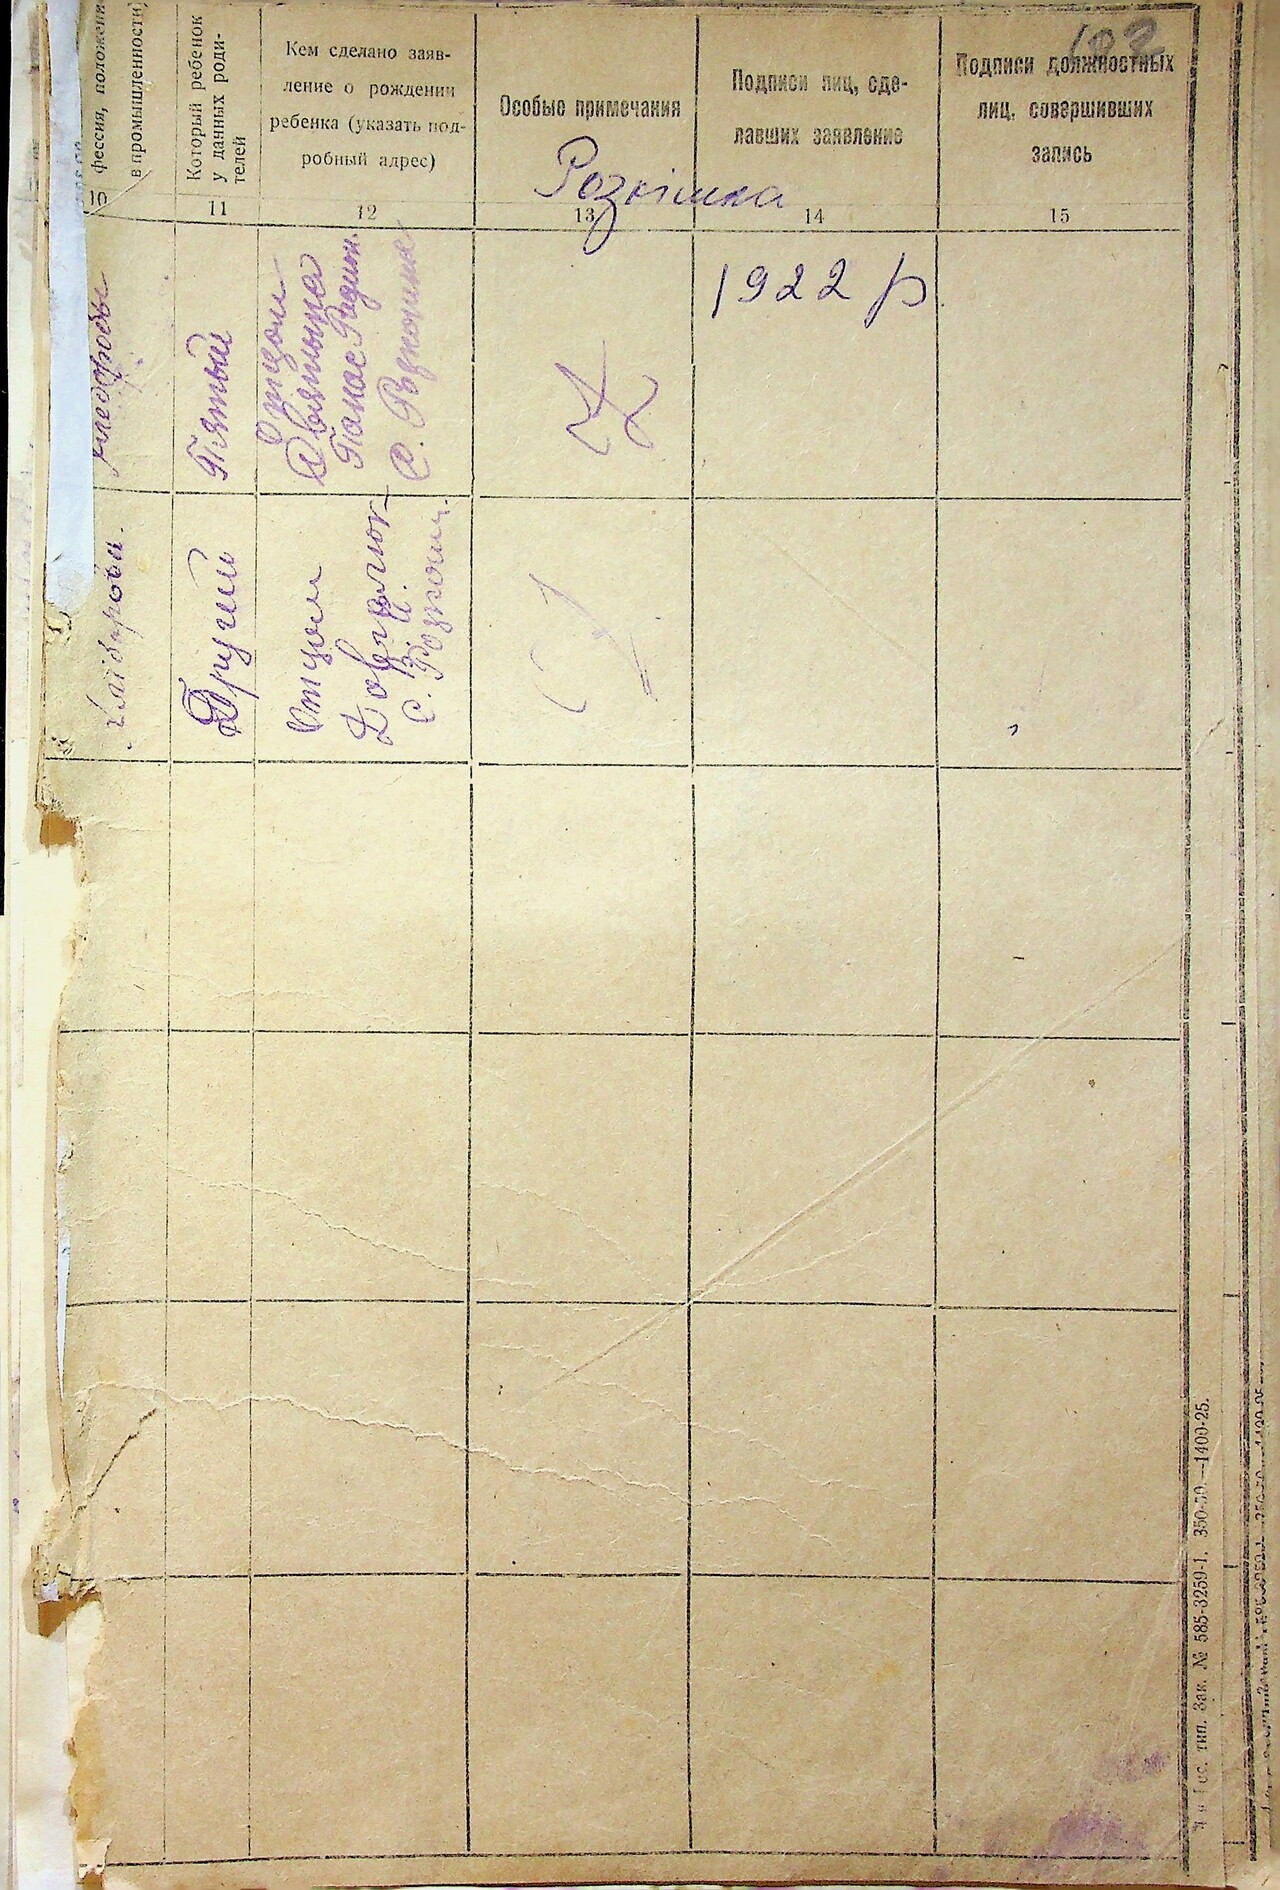 102
фессия, положени
в промышленности)
Который ребенок
у данных роди-
телей
Кем сделано заяв-
ление о рождении
ребенка (указать под-
робный адрес)
Особые примечания
Подписи лиц, сде-
лавших заявление
Подписи должностных
лиц, совершивших
запись
Розкішна
10
11
12
13
14
15
1922 р
хлебороб
Пятый
Отцом
Панас Радион.
С. Розкошна
хлебороб
Другий
Отцом
С. Розкош.
тип. Зак. № 585-3259-1. 350-50.—1400-25.